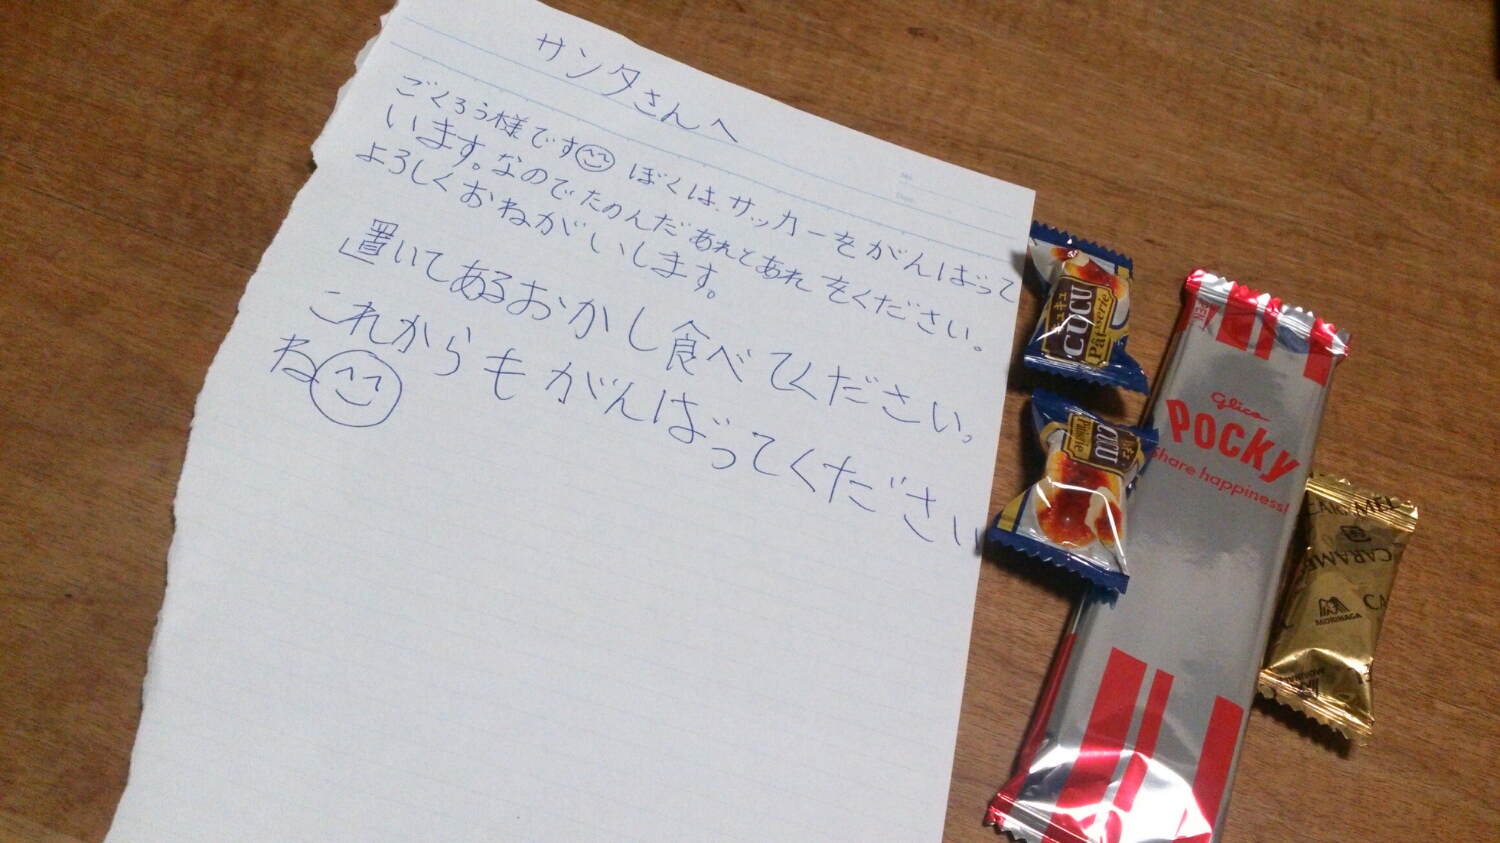 サンタさんへ
ごくろう様です ぼくは、サッカーをがんばって
います。なのでたのんだあれとあれをください。
よろしくおねがいします。
置いてあるおかし食べてください。
これからもがんばってください
ね
キュキュ
CUCU
Pâtisserie
CUCU
Pâtisserie
Glico
POCKY
Share happiness!
CARAMEL
CARAMEL
MORINAGA